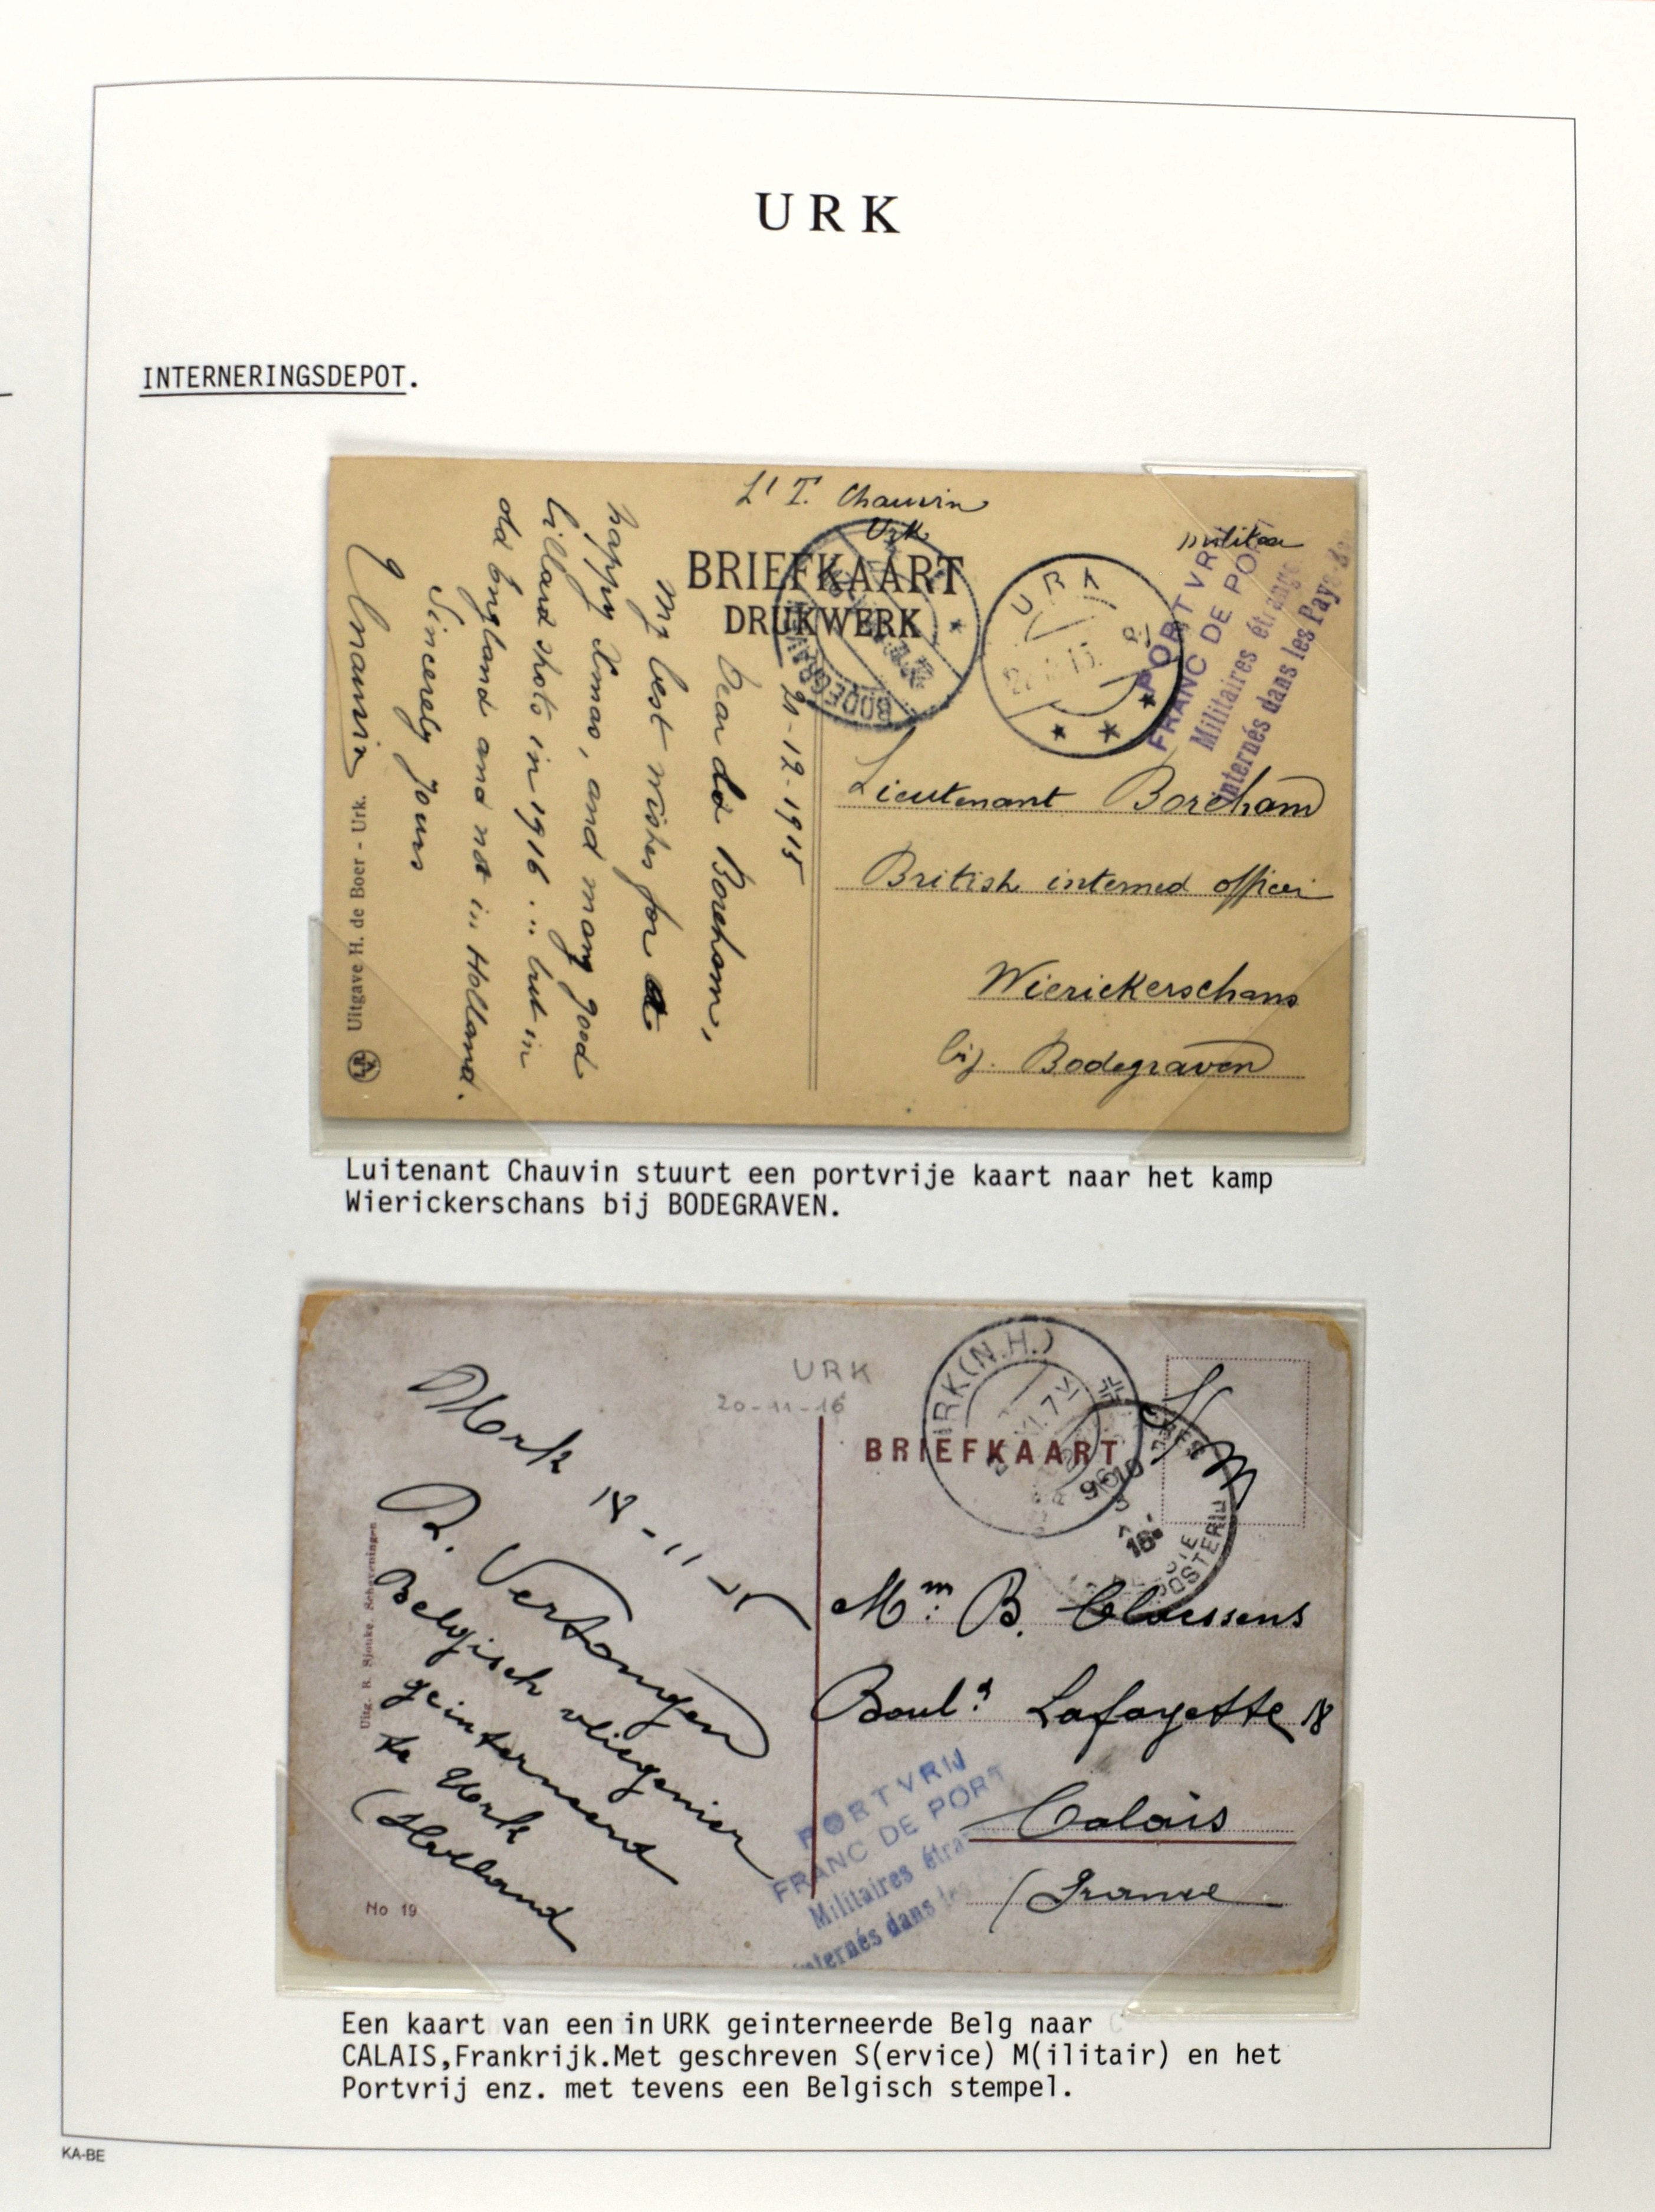 URK
INTERNERINGSDEPOT.
Lt T. Chauvin
Urk
militair
BRIEFKAART
DRUKWERK
BODEGRAVEN
URK
PORTVRIJ
FRANC DE PORT
Militaires étrangers
internés dans les Pays-
21-12-1915
Dear old Boreham,
My best wishes for a
happy Xmas, and many good
billard shots in 1916 ... but in
old England and not in Holland.
Sincerely yours
Chauvin
Uitgave H. de Boer - Urk.
Lieutenant Boreham
British interned officer
Wierickerschans
bij. Bodegraven
Luitenant Chauvin stuurt een portvrije kaart naar het kamp
Wierickerschans bij BODEGRAVEN.
URK
20-11-16
URK(N.H.)
S M
BRIEFKAART
Uitg. B. Sjouke. Scheveningen
Urk 18-11-15
R. Vertongen
Belgisch vliegenier
geinterneerd
te Urk
(Holland
No 19
Mm: B. Claessens
Boul.d Lafayette 18
Calais
(France
PORTVRIJ
FRANC DE PORT
Militaires étra
internés dans les
Een kaart van een in URK geinterneerde Belg naar
CALAIS,Frankrijk.Met geschreven S(ervice) M(ilitair) en het
Portvrij enz. met tevens een Belgisch stempel.
KA-BE